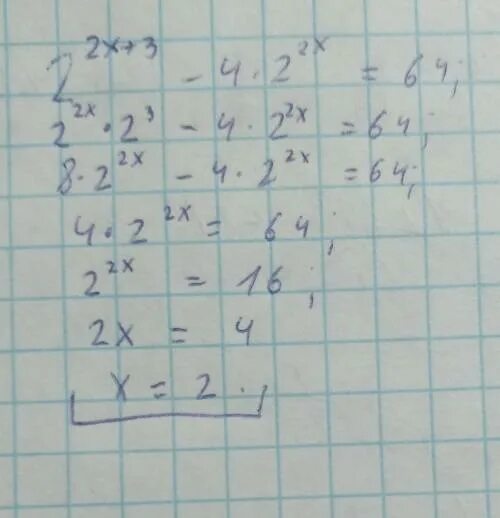 2^{2x+3} - 4 · 2^{2x} = 64;
2^{2x} · 2^3 - 4 · 2^{2x} = 64;
8 · 2^{2x} - 4 · 2^{2x} = 64;
4 · 2^{2x} = 64;
2^{2x} = 16;
2x = 4
x = 2.